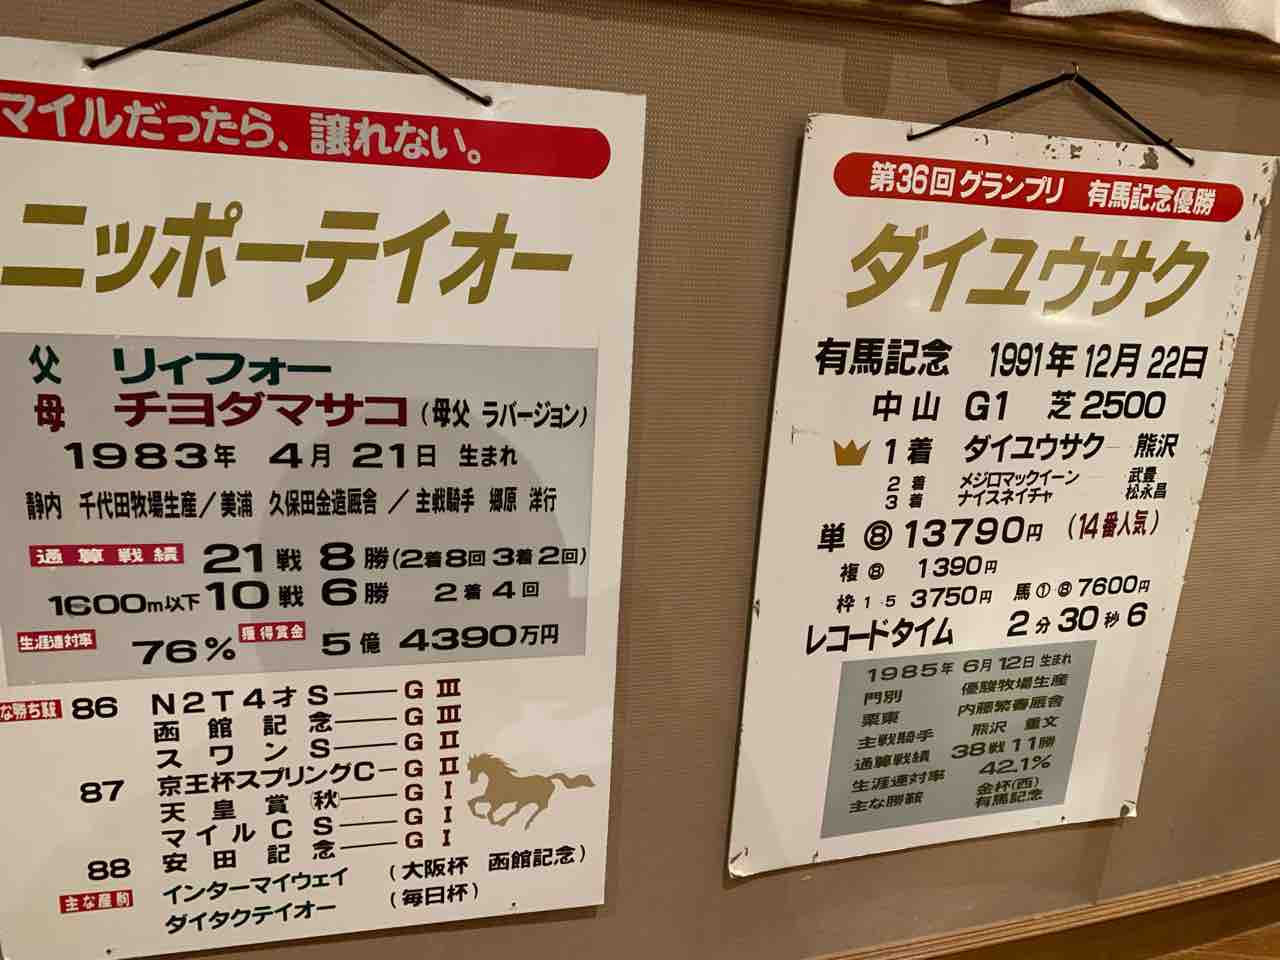 マイルだったら、譲れない。
ニッポーテイオー
父 リィフォー
母 チヨダマサコ (母父 ラバージョン)
1983年 4月 21日 生まれ
静内 千代田牧場生産/美浦 久保田金造厩舎 / 主戦騎手 郷原 洋行
通算戦績 21戦 8勝(2着8回 3着2回)
1600m以下 10戦 6勝 2着4回
生涯連対率 76% 獲得賞金 5億 4390万円
な勝ち鞍 86 N2T4才S――GⅢ
函館記念――GⅢ
スワンS――GⅡ
87 京王杯スプリングC―GⅡ
天皇賞(秋)――GⅠ
マイルCS――GⅠ
88 安田記念――GⅠ
主な産駒 インターマイウェイ (大阪杯 函館記念)
ダイタクテイオー (毎日杯)
第36回グランプリ 有馬記念優勝
ダイユウサク
有馬記念 1991年12月22日
中山 G1 芝2500
1着 ダイユウサク 熊沢
2着 メジロマックイーン 武豊
3着 ナイスネイチャ 松永昌
単⑧13790円 (14番人気)
複⑧ 1390円
枠1-5 3750円 馬①⑧7600円
レコードタイム 2分30秒6
1985年 6月12日生まれ
門別 優駿牧場生産
栗東 内藤繁春厩舎
主戦騎手 熊沢 重文
通算戦績 38戦11勝
生涯連対率 42.1%
主な勝鞍 金杯(西)
有馬記念